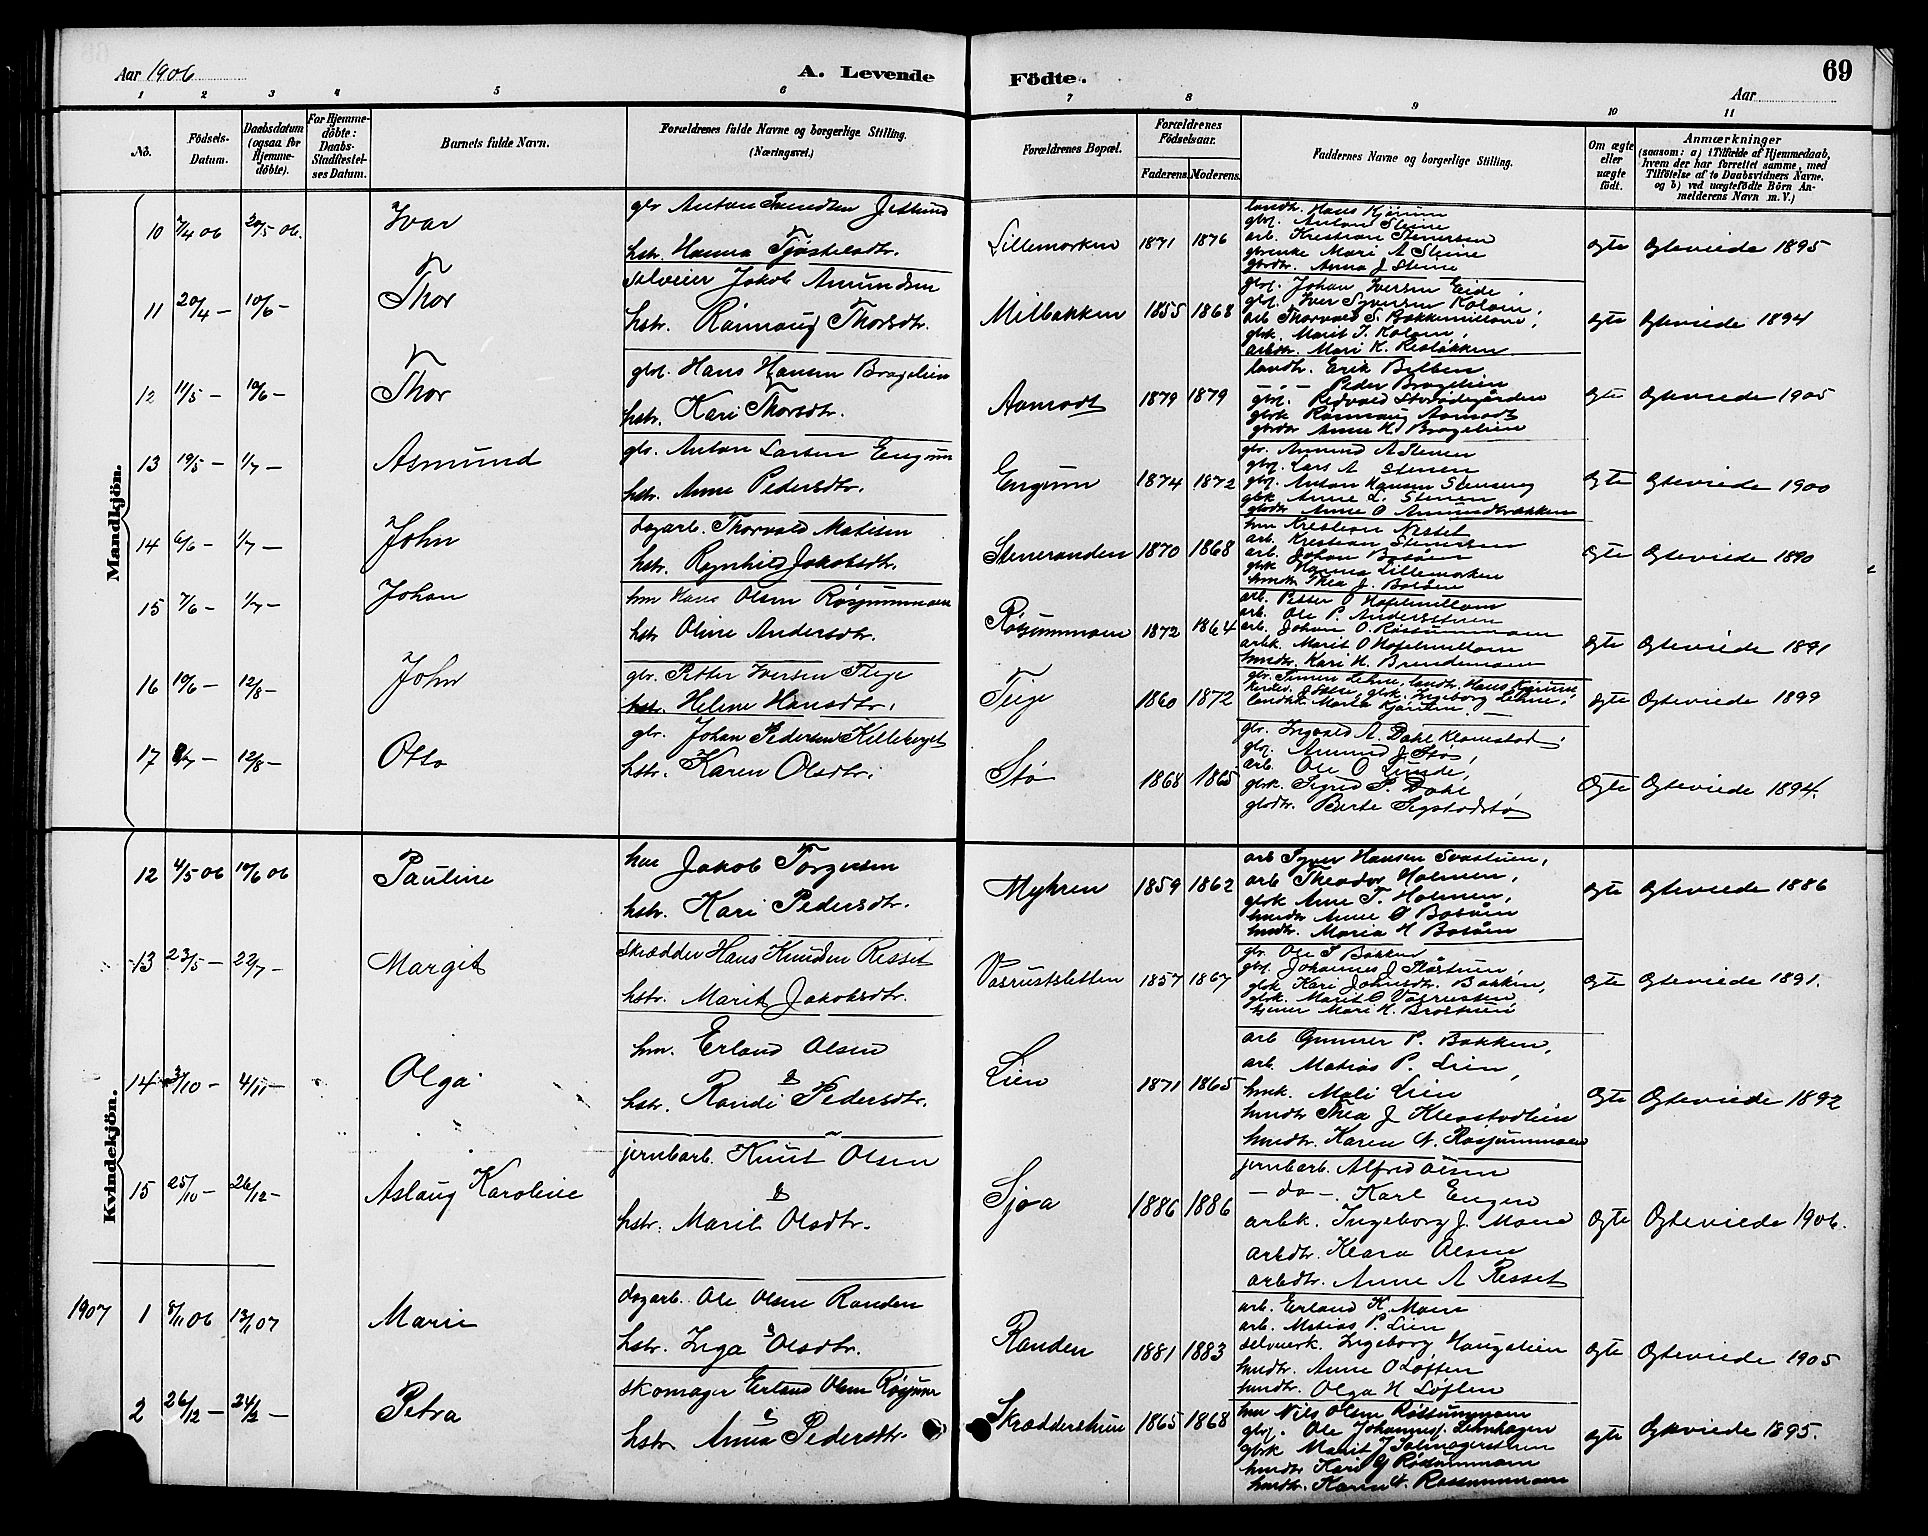 Aar 1906
A. Levende Födte.
69
Aar
1 2 3 4 5 6 7 8 9 10 11
No.
Födsels-Datum.
Daabsdatum (ogsaa for Hjemmedöbte).
For Hjemmedöbte: Daabs-Stadfæstelses Datum.
Barnets fulde Navn.
Forældrenes fulde Navne og borgerlige Stilling.
(Næringsvei.)
Forældrenes Bopæl.
Forældrenes Födselsaar.
Faderens. Moderens.
Faddernes Navne og borgerlige Stilling.
Om ægte eller uægte födt.
Anmærkninger
(saasom: a) i Tilfælde af Hjemmedaab, hvem der har forrettet samme, med Tilföielse af to Daabsvidners Navne, og b) ved uægtefödte Börn Anmelderens Navn m. V.)
Mandkjön.
10 7/4 06 20/5 06. Ivar
hstr. Hanna
Lillemorken 1871 1876
landh. Hans Kjörum
gbrf. Anton Steine
arb. Kristian Stenersen
Mari A Steine
gbrdtr. Anna J Steine
ægte Ægteviede 1895
11 20/4 — 10/6 — Thor
selveier Jakob Amundsen
hstr. Rönnaug Thorsdtr.
Milbakken 1855 1868
gbrf. Johan Iversen Eide,
gbrf. Iver Syversen Kolaen,
arb Thorvald S. Bakkemillom,
gbrk. Marit J. Kolaen,
arbdtr. Mari K.
ægte Ægteviede 1894
12 11/5 — 10/6 — Thor
gbrf. Hans Hansen Bragelien
hstr. Kari Thorsdtr.
Aamodt 1879 1879
landh. Erik
— " — Peder Bragelien
gbrk Rönnaug Aamodt
gbrdtr Anne H. Bragelien
ægte Ægteviede 1905
13 19/5 — 1/7 — Asmund
gbr. Anton Larsen Engum
hstr. Anne Pedersdtr.
Engum 1874 1872
gbr. Amund A Stenen
gbrf. Lars A Stenen
gbrf. Anton Hansen Stenseng
gbk Anne L. Stenen
gbrdtr Anne O Amundbakken
ægte Ægteviede 1900
14 6/6 — 1/7 — John
dagarb. Thorvald Matisen
hstr. Ragnhild Jakobsdtr.
Steneranden 1870 1868
hm Kristian Nesset
arb. Kristian Stenersen
arb. Johan
gbk Hanna Lillemorken
hmdtr Thea J.
ægte Ægteviede 1890
15 7/6 — 1/7 — Johan
hm Hans Olsen Rosjummoen
hstr Oline Andersdtr.
Rosjummoen 1872 1864
arb. Petter O
arb. Ole P.
arb. Johan O
arbk. Marit O
hmdtr. Kari H. Brendemoen
ægte Ægteviede 1891
16 10/6 — 12/8 — John
gbr. Petter Iversen Teige
hstr. Helene Hansdtr.
Teige 1860 1872
gbr. Simen Lehne, landh. Hans Kjörum,
gbrk. Ingeborg Lehne,
ægte Ægteviede 1899
17 12/8 — Otto
gbr. Johan Pedersen Killeberget
hstr. Karen Olsdtr.
Stö 1868 1865
gbr. Ingvald A. Dahl
gbrf. Amund J. Stö,
arb. Ole O Linde,
gbrk. Sigrid P. Dahl
gbrdtr. Berte
Ægte Ægteviede 1894.
Kvindekjön.
12 4/5 06 10/6 06 Pauline
hm Jakob Torgersen
hstr. Kari Pedersdtr.
Myhren 1859 1862
arb Syver Hansen
arb Theodor Holmen,
gbrk Anne T. Holmen,
hmdtr Anne O
hmdtr. Maria H
ægte Ægteviede 1886
13 23/5 — 22/7 — Margit
skrædder Hans Knudsen Resset
hstr. Marit Jakobsdtr.
Vaarustsletten 1857 1867
gbr. Ole S Bakken
gbrf. Johannes J
gbrk Kari Johnsdtr. Bakken,
gbrk. Marit O
Mari H.
ægte Ægteviede 1891.
14 /10 — 4/11 — Olga
hm. Erland Olsen
hstr. Randi Pedersdtr.
Lien 1871 1865
arb Gunner P. Bakken,
arb. Matias P. Lien,
hmk. Mali Lien
hmdtr Thea J
hmdtr. Karen N. Rosjummoen
Ægte Ægteviede 1892
15 25/10 — 26/12 — Aslaug Karoline
jernbarb. Knut Olsen
hstr. Marit Olsdtr.
Sjoa 1886 1886
jernbarb. Alfred Olsen
— do —. Karl Engen
arbk. Ingeborg J. Moen
arbdtr. Klara Olsen
arbdtr. Anne A Resset
Ægte Ægteviede 1906.
1907 1 8/11 06 13/1 07 Marie
dagarb. Ole Olsen Randen
hstr. Inga Olsdtr.
Randen 1881 1883
arb. Erland K. Moen
arb. Matias P. Lien
selveierk. Ingeborg Haugalien
hmdtr. Anne O Löften
hmdtr. Olga H Löften
Ægte Ægteviede 1905
2 26/12 — 24/2 — Petra
skomager Erland Olsen
hstr Anna Pedersdtr.
Skrædderstuen 1865 1868
hm Nils Olsen
gbrf. Ole Johannesf.
gbrk Marit J
hmdtr Kari G
hmdtr. Karen N.
ægte Ægteviede 1895.